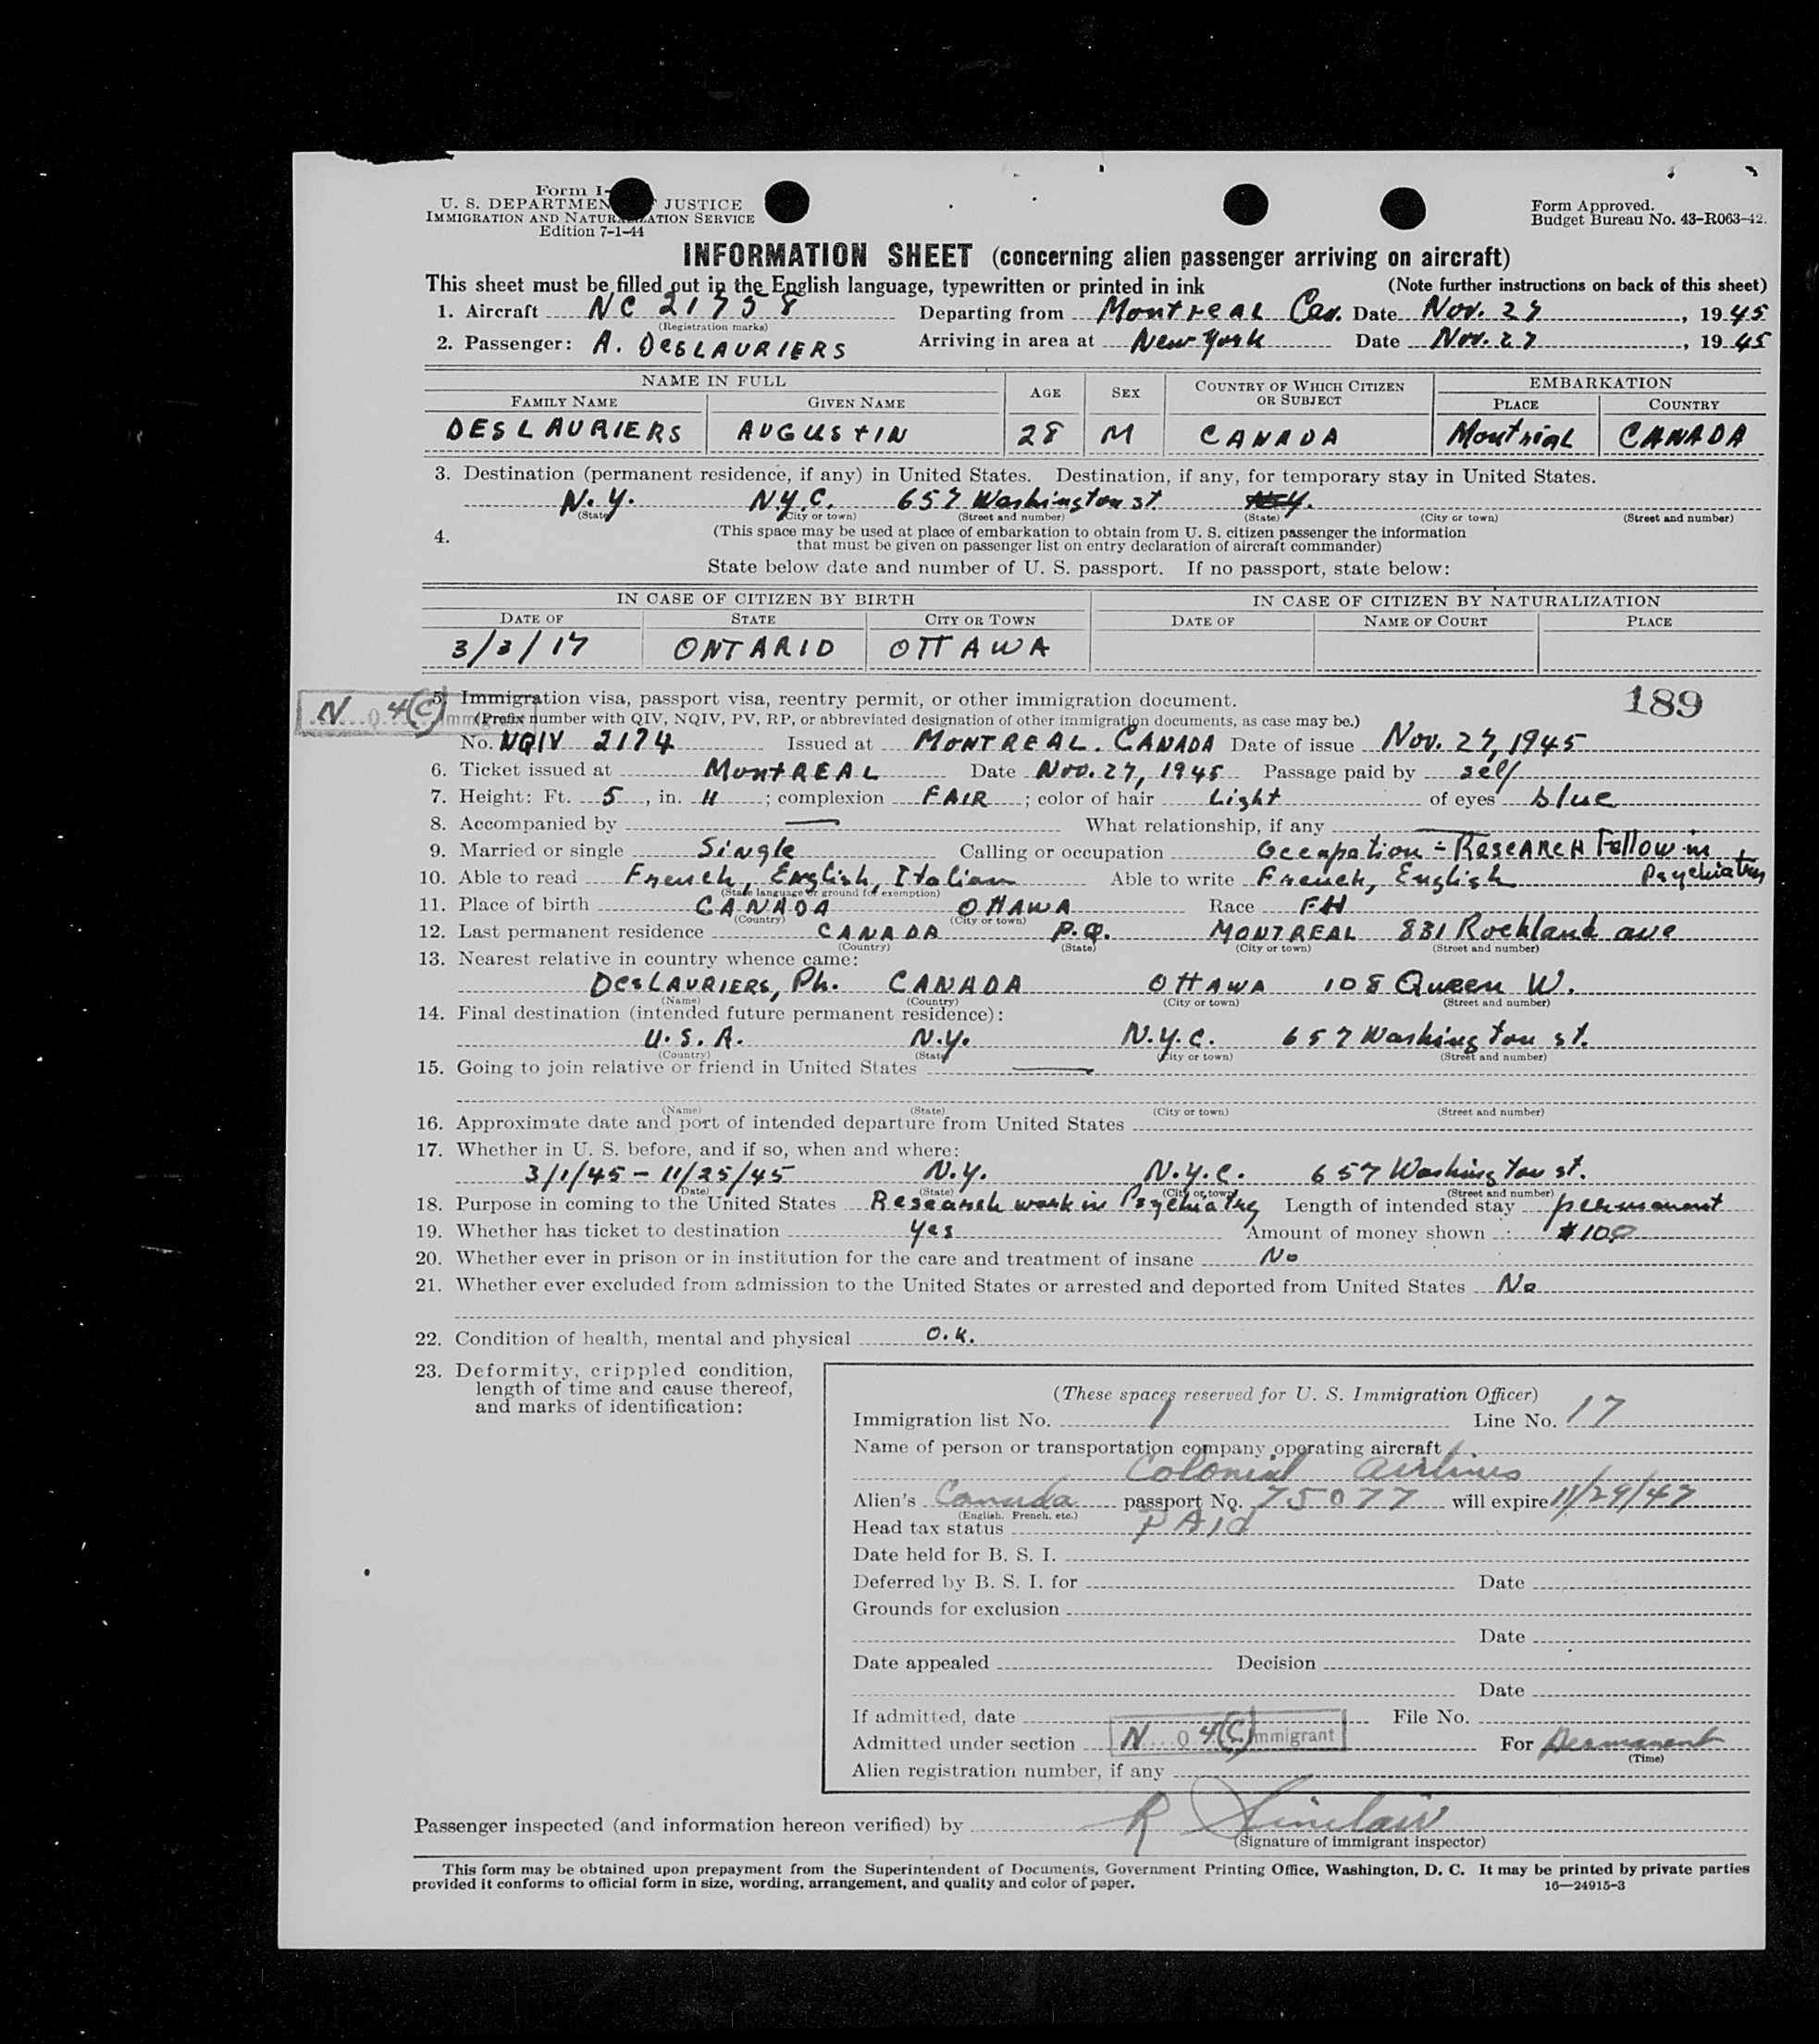 Form I-
U. S. DEPARTMEN JUSTICE
IMMIGRATION AND NATURALIZATION SERVICE
Edition 7-1-44
Form Approved.
Budget Bureau No. 43-R063-42.
INFORMATION SHEET (concerning alien passenger arriving on aircraft)
This sheet must be filled out in the English language, typewritten or printed in ink (Note further instructions on back of this sheet)
1. Aircraft NC 21758 Departing from Montreal Can. Date Nov. 27, 1945
(Registration marks)
2. Passenger: A. DESLAURIERS Arriving in area at New York Date Nov. 27, 1945
NAME IN FULL AGE SEX COUNTRY OF WHICH CITIZEN OR SUBJECT EMBARKATION
FAMILY NAME GIVEN NAME PLACE COUNTRY
DESLAURIERS AUGUSTIN 28 M CANADA Montreal CANADA
3. Destination (permanent residence, if any) in United States. Destination, if any, for temporary stay in United States.
N.Y. N.Y.C. 657 Washington st.
(State) (City or town) (Street and number) (State) (City or town) (Street and number)
4. (This space may be used at place of embarkation to obtain from U. S. citizen passenger the information
that must be given on passenger list on entry declaration of aircraft commander)
State below date and number of U. S. passport. If no passport, state below:
IN CASE OF CITIZEN BY BIRTH IN CASE OF CITIZEN BY NATURALIZATION
DATE OF STATE CITY OR TOWN DATE OF NAME OF COURT PLACE
3/3/17 ONTARIO OTTAWA
5. Immigration visa, passport visa, reentry permit, or other immigration document. 189
N 0 4(C) Imm
(Prefix number with QIV, NQIV, PV, RP, or abbreviated designation of other immigration documents, as case may be.)
No. NQIV 2174 Issued at MONTREAL. CANADA Date of issue Nov. 27, 1945
6. Ticket issued at MontREAL Date Nov. 27, 1945 Passage paid by self
7. Height: Ft. 5, in. 11; complexion FAIR; color of hair Light of eyes blue
8. Accompanied by — What relationship, if any —
9. Married or single Single Calling or occupation Occupation = RESEARCH Fellow in Psychiatry
10. Able to read French, English, Italian Able to write French, English
(State language or ground for exemption)
11. Place of birth CANADA OTTAWA Race FH
(Country) (City or town)
12. Last permanent residence CANADA P.Q. MONTREAL 831 Rockland ave
(Country) (State) (City or town) (Street and number)
13. Nearest relative in country whence came:
DESLAURIERS, Ph. CANADA OTTAWA 108 Queen W.
(Name) (Country) (City or town) (Street and number)
14. Final destination (intended future permanent residence):
U.S.A. N.Y. N.Y.C. 657 Washington st.
(Country) (State) (City or town) (Street and number)
15. Going to join relative or friend in United States —
(Name) (State) (City or town) (Street and number)
16. Approximate date and port of intended departure from United States
17. Whether in U. S. before, and if so, when and where:
3/1/45 - 11/25/45 N.Y. N.Y.C. 657 Washington st.
(Date) (State) (City or town) (Street and number)
18. Purpose in coming to the United States Research work in Psychiatry Length of intended stay permanent
19. Whether has ticket to destination yes Amount of money shown $100
20. Whether ever in prison or in institution for the care and treatment of insane No
21. Whether ever excluded from admission to the United States or arrested and deported from United States No
22. Condition of health, mental and physical O.K.
23. Deformity, crippled condition,
length of time and cause thereof,
and marks of identification:
(These spaces reserved for U. S. Immigration Officer)
Immigration list No. 1 Line No. 17
Name of person or transportation company operating aircraft
Colonial Airlines
Alien's Canada passport No. 75077 will expire 11/29/47
(English, French, etc.)
Head tax status PAID
Date held for B. S. I.
Deferred by B. S. I. for Date
Grounds for exclusion
Date
Date appealed Decision
Date
If admitted, date File No.
Admitted under section N 0 4(C) Immigrant For Permanent
(Time)
Alien registration number, if any
Passenger inspected (and information hereon verified) by R Sinclair
(Signature of immigrant inspector)
This form may be obtained upon prepayment from the Superintendent of Documents, Government Printing Office, Washington, D. C. It may be printed by private parties
provided it conforms to official form in size, wording, arrangement, and quality and color of paper. 16—24915-3